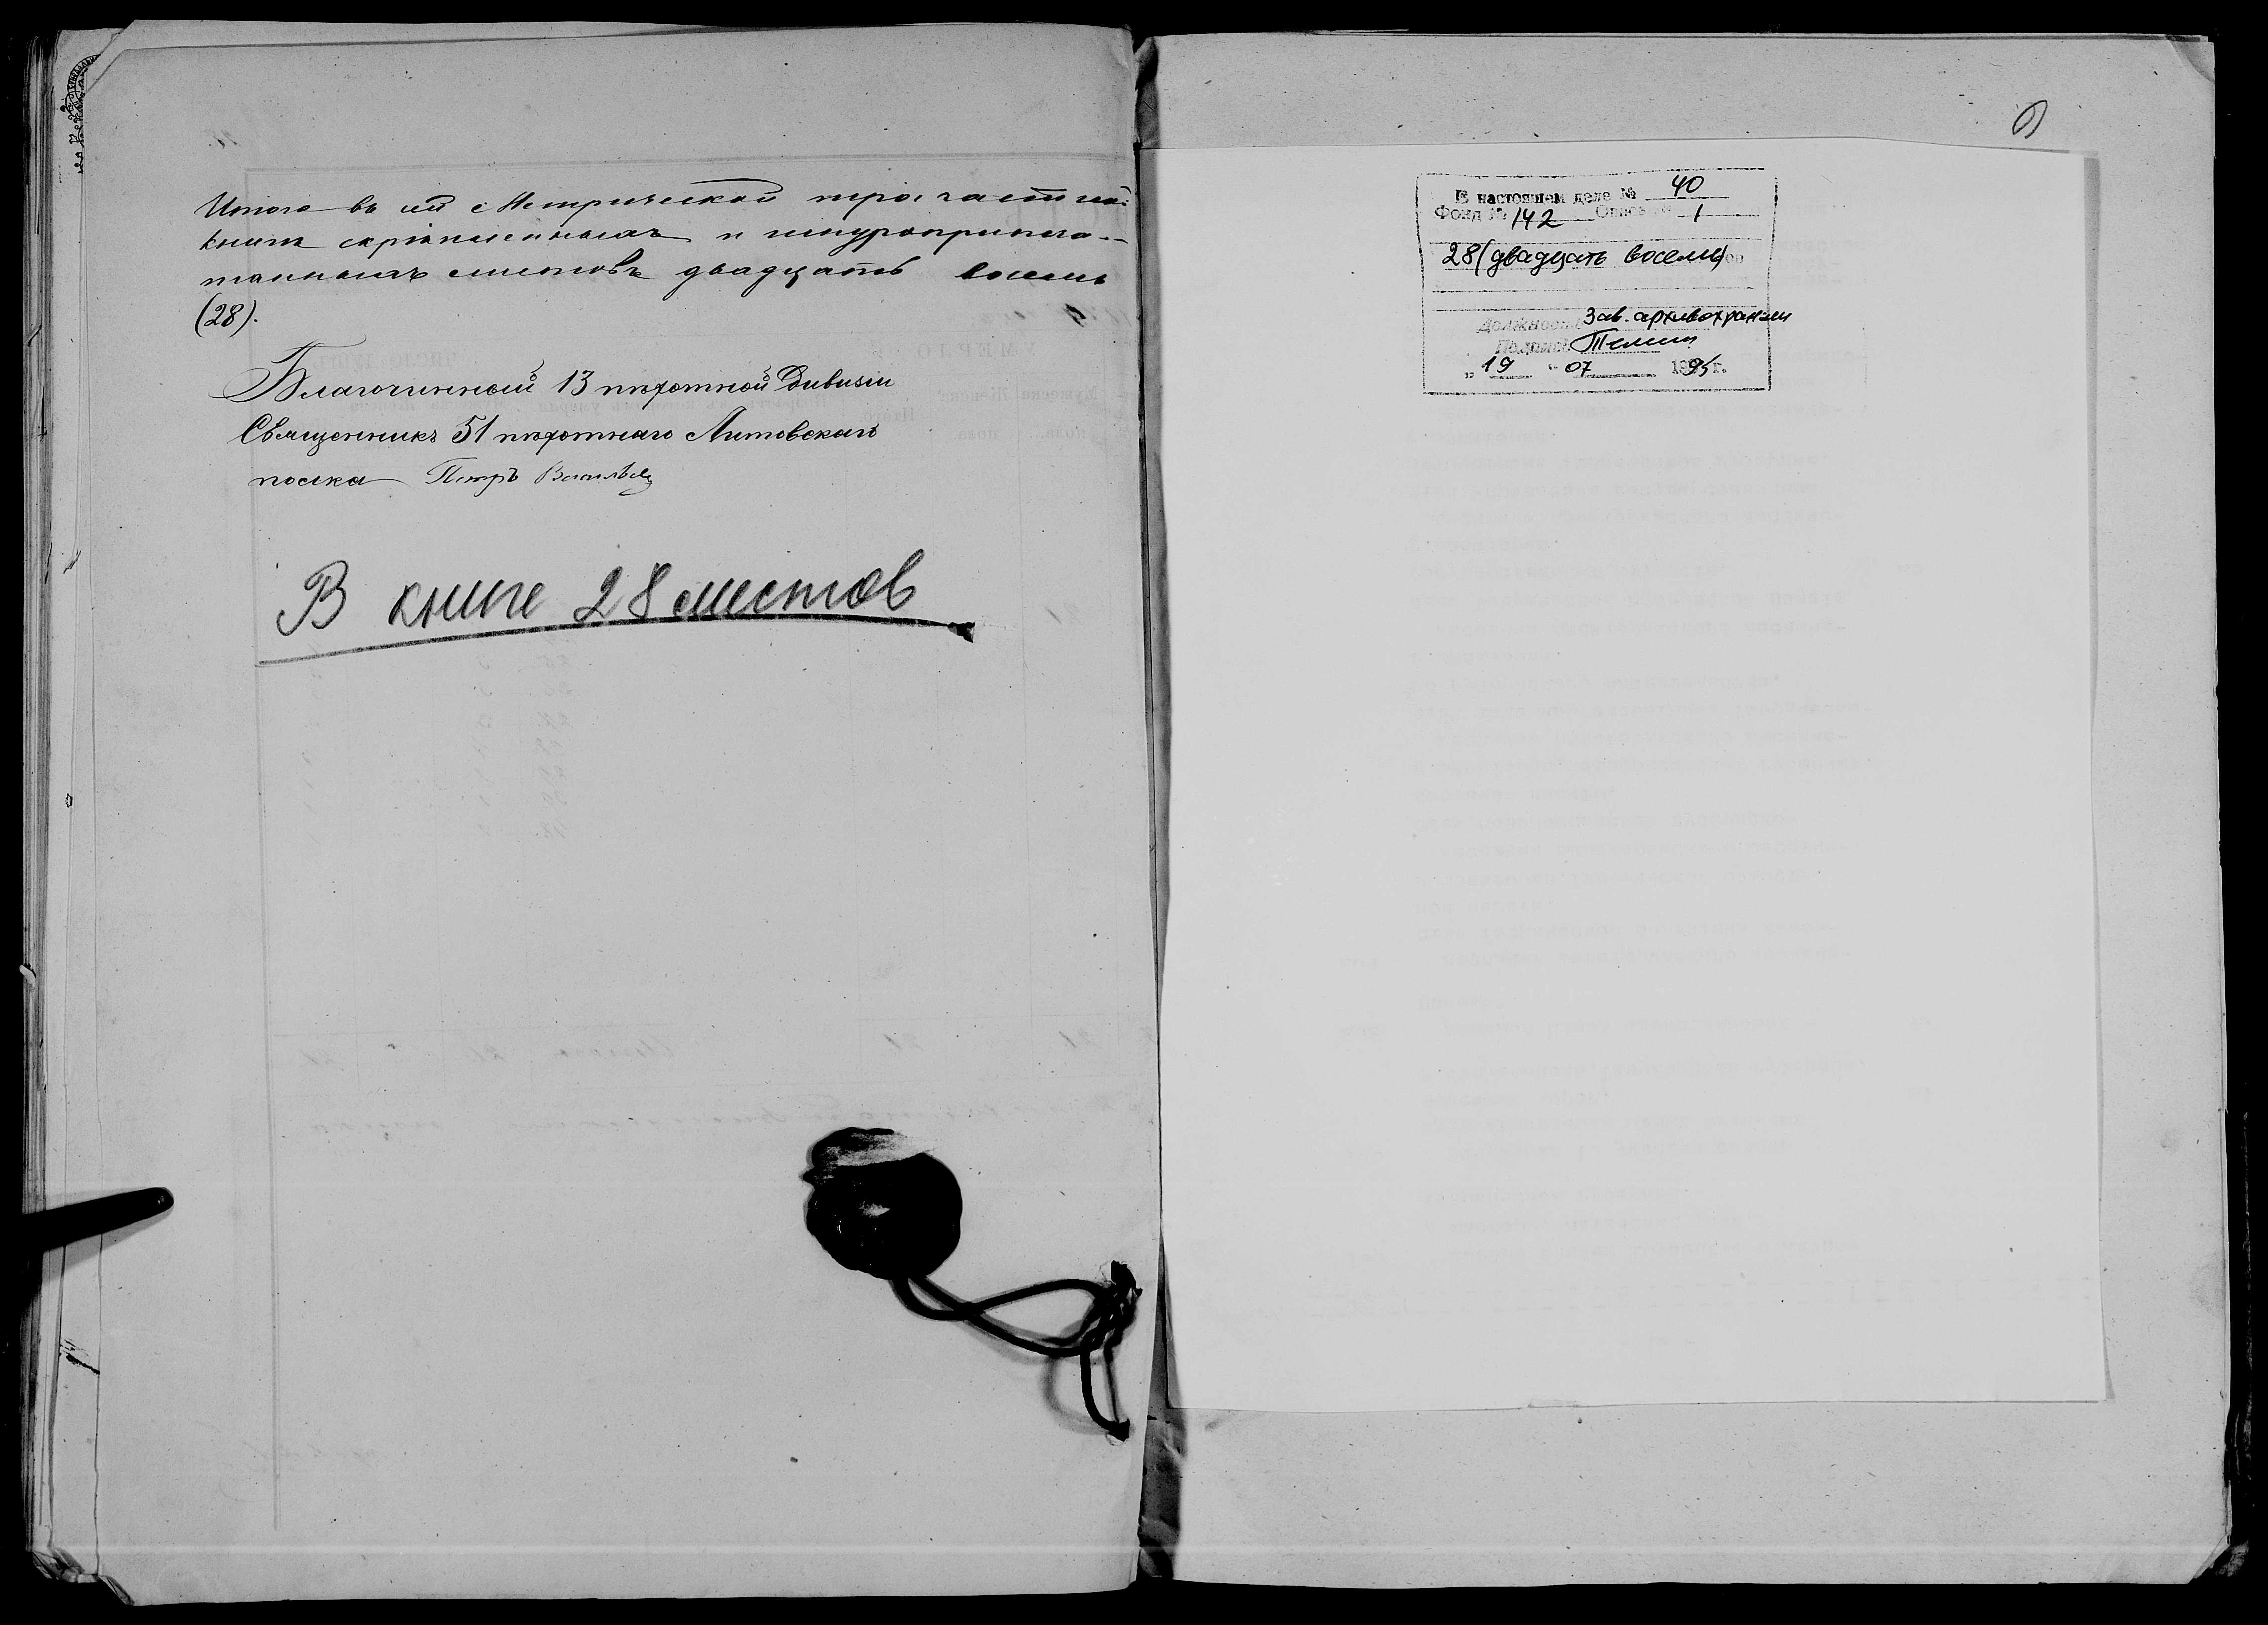 Итого въ сей Метрической трехчастной
книгѣ скрѣпленныхъ и шнуроприпеча-
танныхъ листовъ двадцать восемь
(28).
Благочинный 13 пѣхотной Дивизіи
Священникъ 51 пѣхотнаго Литовскаго
полка Петръ
В книге 28 листов
В настоящем деле № 40
Фонд № 142 Опись № 1
28 (двадцать восемь)
Должность Зав. архивохранил
Подпись
"19" 07 1995 г.